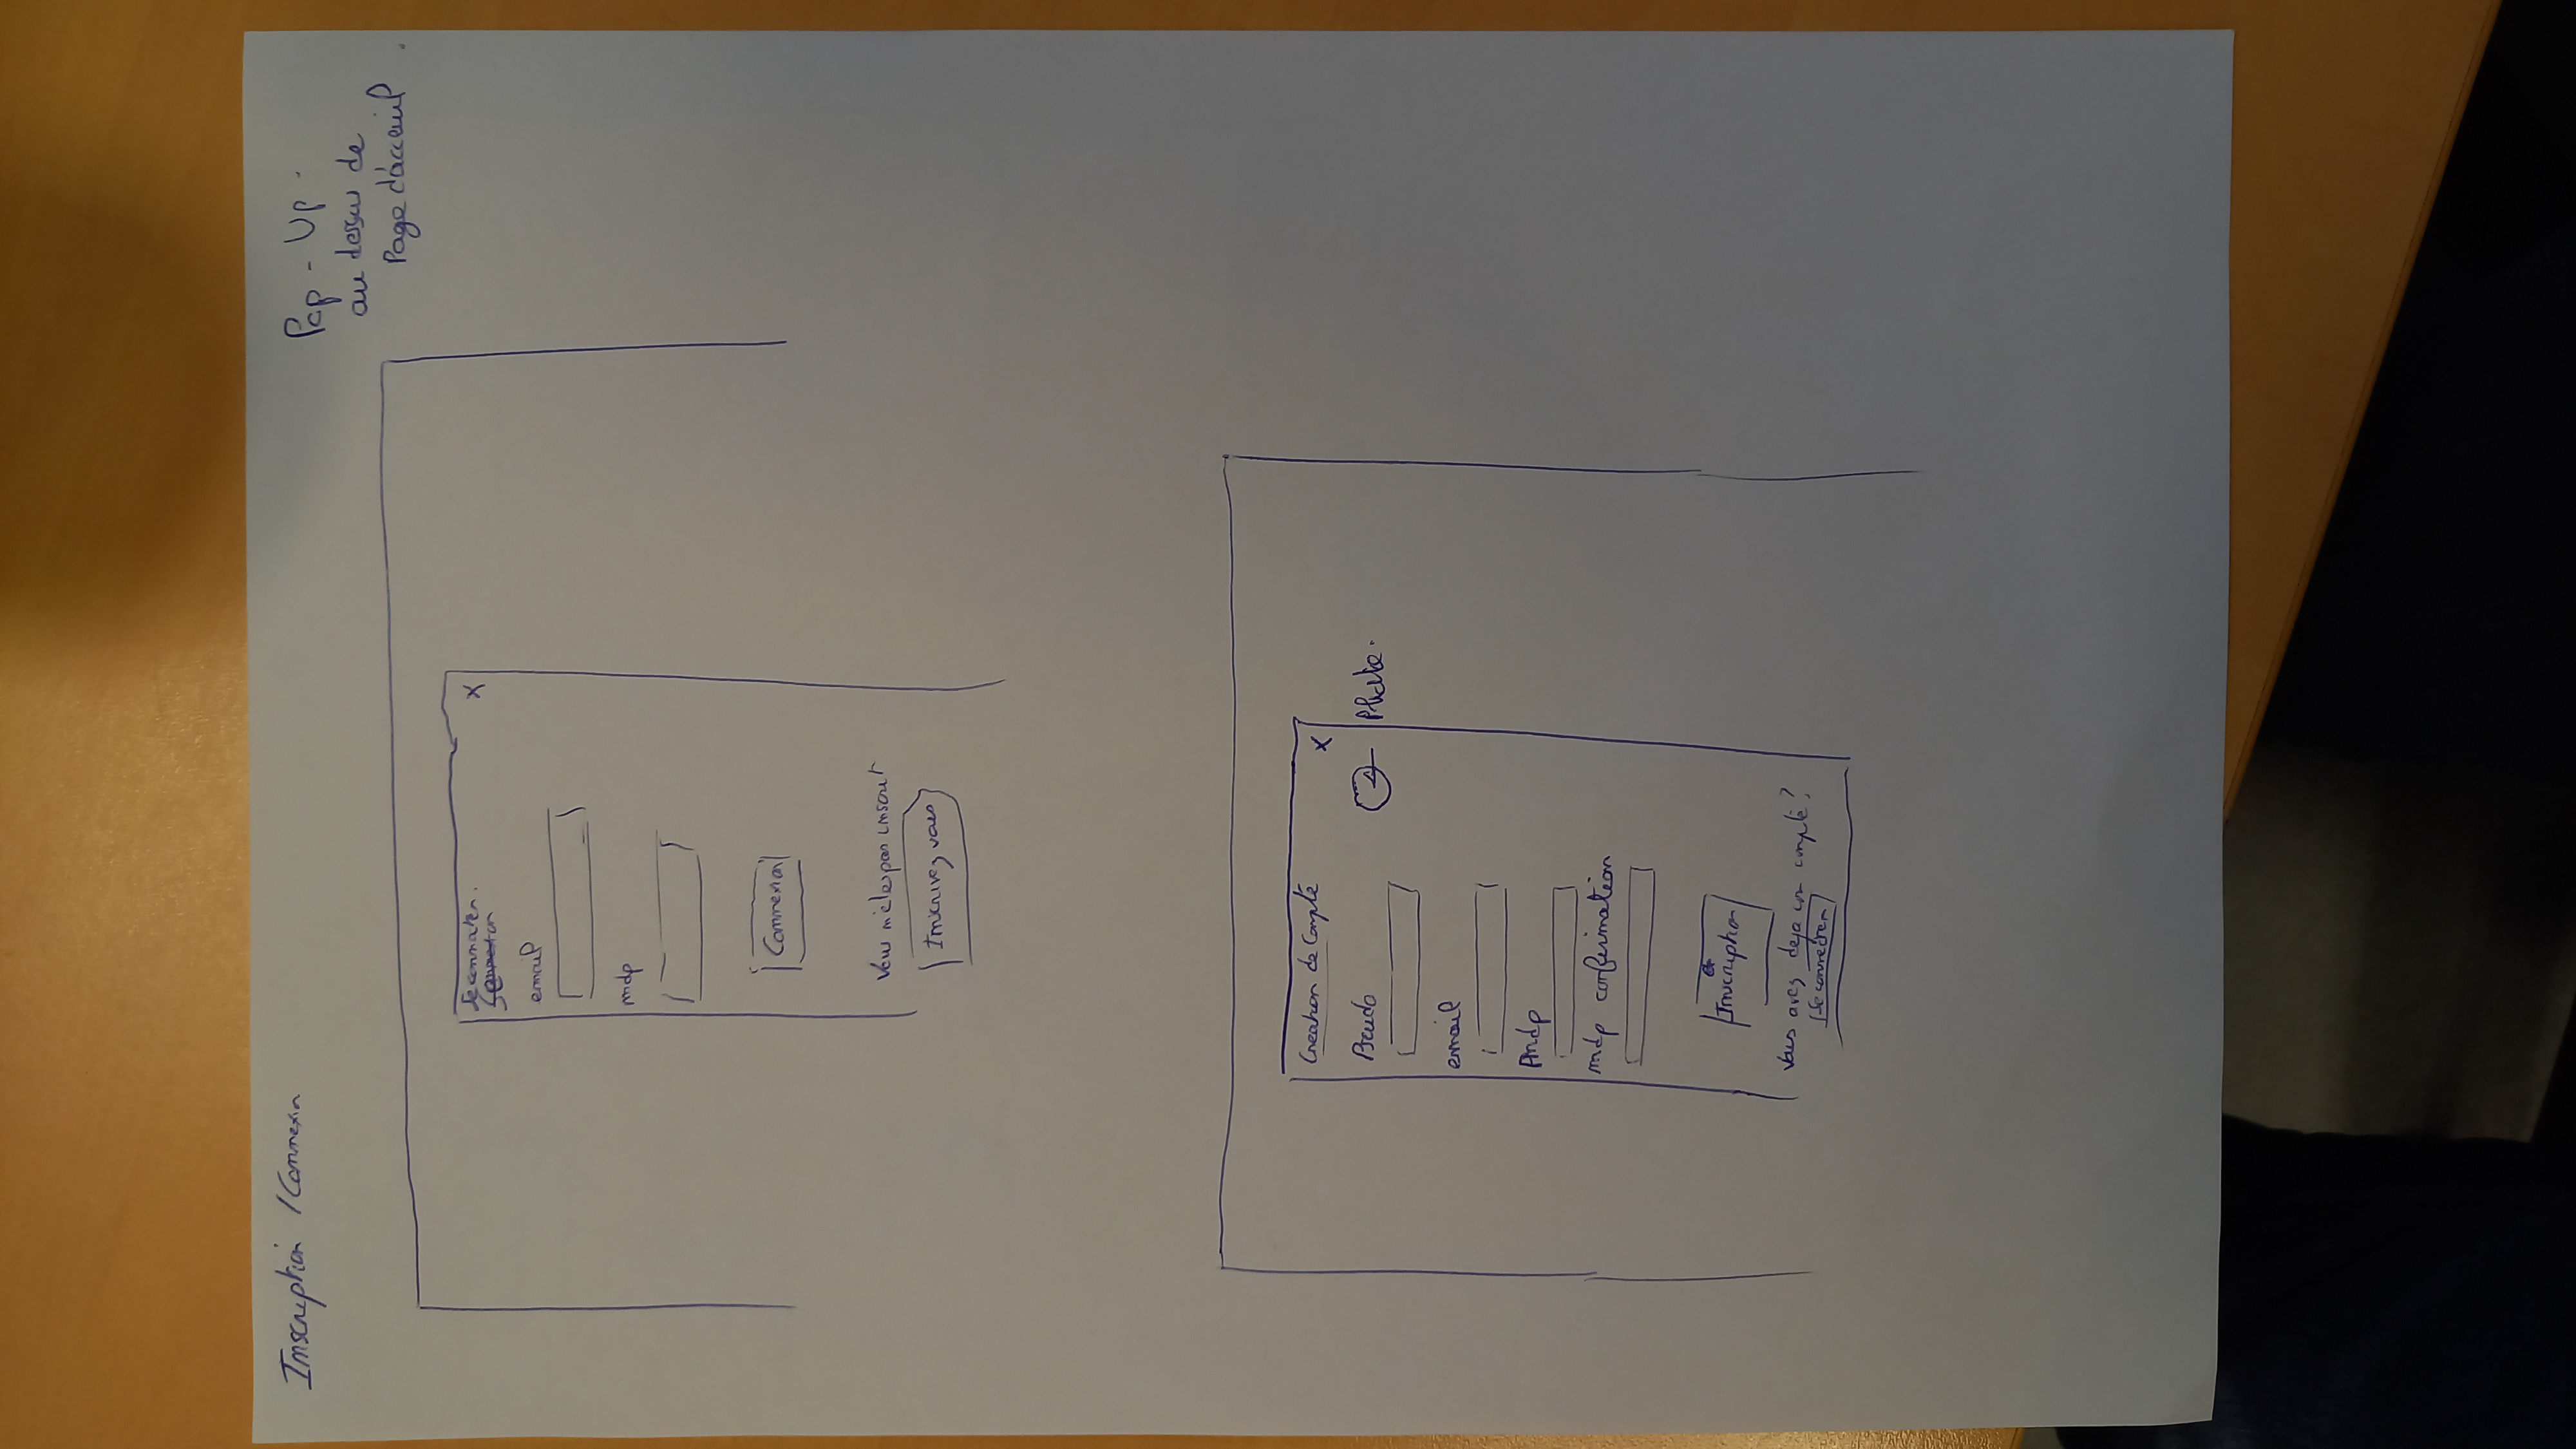 Inscription / Connexion
Pop - Up
au dessus de
Page d'acceuil
Se connecter.
X
email
mdp
Connexion
Vous n'êtes pas inscrit
Inscrivez vous
Creation de Compte
X
Pseudo
Photo.
email
mdp
mdp confirmation
Inscription
Vous avez deja un compte?
Se connecter